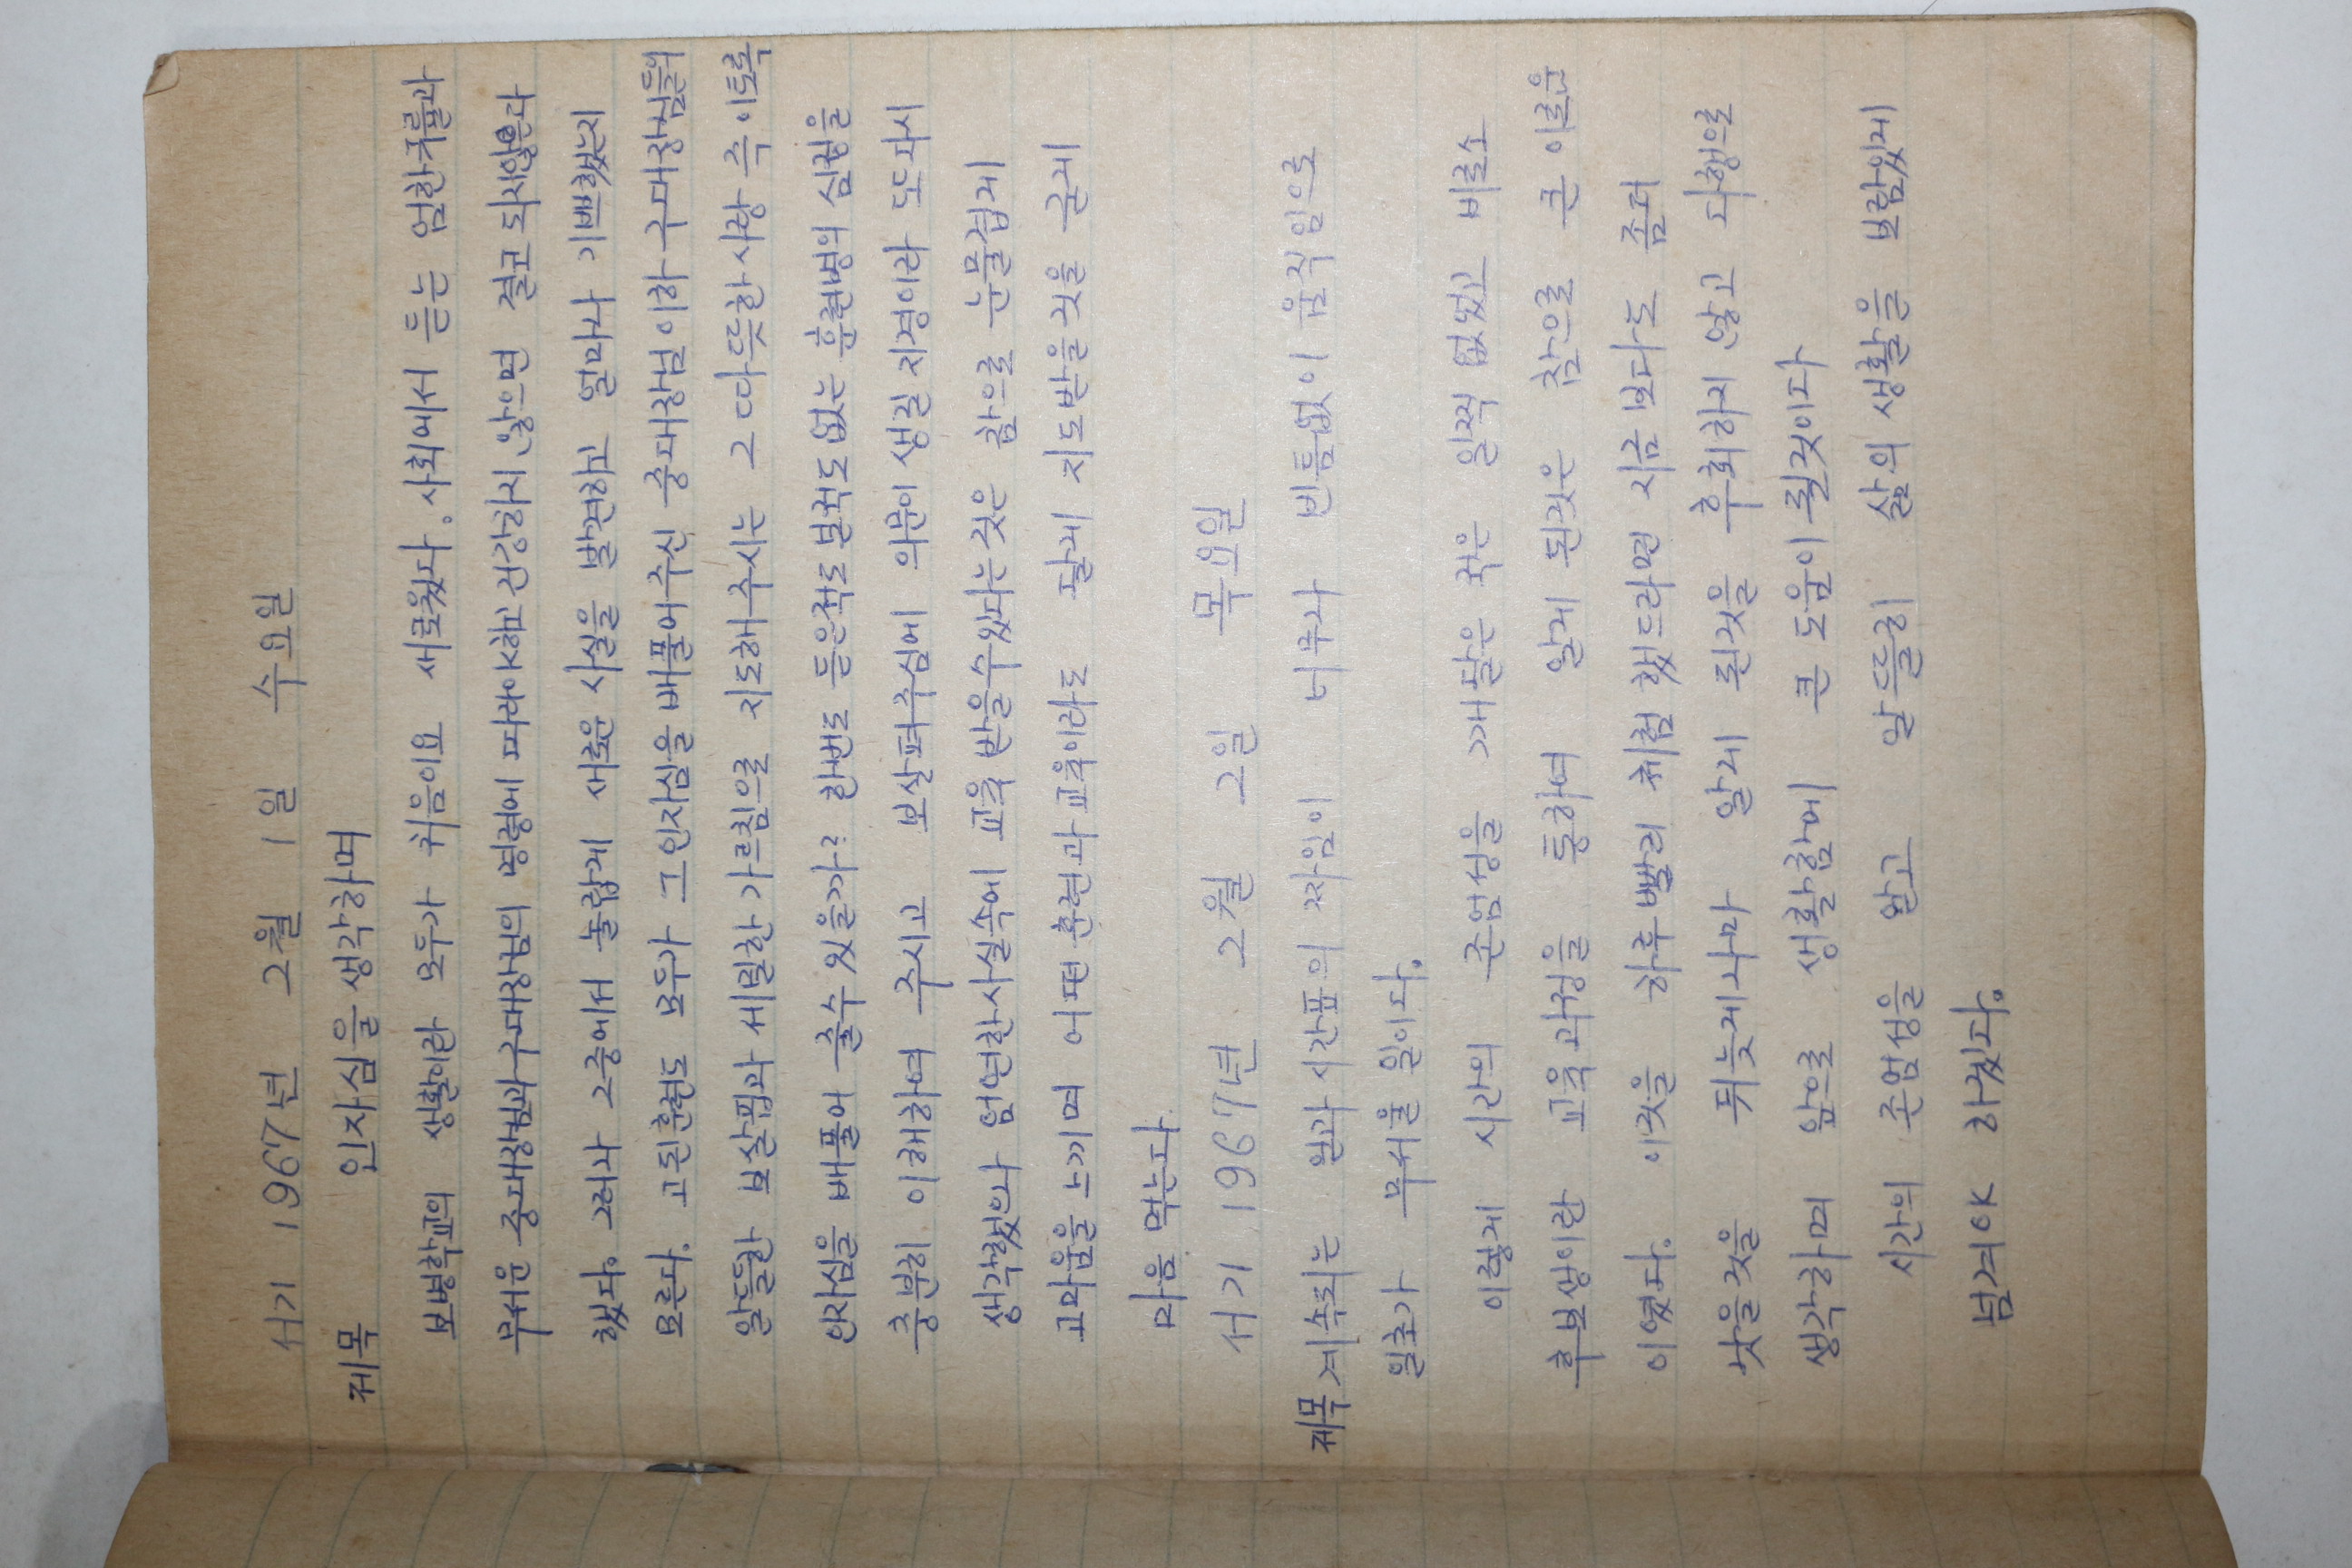 서기 1967년 2월 1일 수요일
제목 인자심을 생각하며
보병학교의 생활이란 모두가 처음이요 새로웠다. 사회에서 듣는 엄한규률과
무서운 중대장님과 구대장님의 명령에 따라야하고 건강하지 않으면 결코 되지않는다
했다. 그러나 그중에서 놀랍게 새로운 사실을 발견하고 얼마나 기뻐했는지
모른다. 고된훈련도 모두가 그인자심을 베풀어주신 중대장님이하 구대장님들의
알뜰한 보살핌과 세밀한 가르침으로 지도해주시는 그 따뜻한사랑 즉 이토록
인자심을 베풀어 줄수 있을가? 한번도 들은적도 본적도 없는 훈련병의 심정을
충분히 이해하여 주시고 보살펴주심에 의문이 생길 지경이라 또다시
생각했으나 엄연한사실속에 교육 받을수있다는것은 참으로 눈물겹게
고마움을 느끼며 어떠한 훈련과 교육이라도 달게 지도받을것을 굳게
마음 먹는다
서기 1967년 2월 2일 목요일
제목 계속되는 일과 시간표의 짜임이 너무나 빈틈없이 움직임으로
일초가 무서울 일이다.
이렇게 시간의 존엄성을 깨달은 적은 일찍 없었고 비로소
후보생이란 교육과정을 통하여 알게 된것은 참으로 큰 이로움
이였다. 이것을 하루빨리 체험했드라면 지금보다도 좀더
낫을것을 뒤늦게나마 알게 된것을 후회하지 않고 다행으로
생각하며 앞으로 생활함에 큰 도움이 될것이다
시간의 존엄성을 알고 알뜰히 삶의 생활을 보람있게
넘겨야 하겠다.